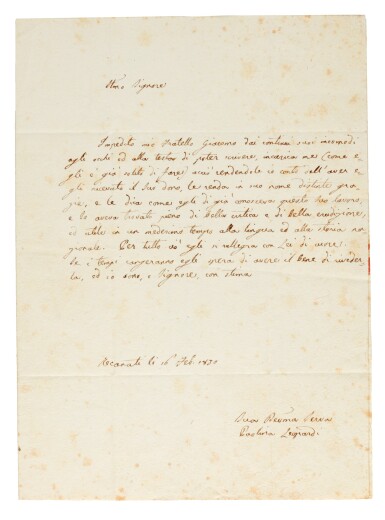 Illmo Signore
Impedito mio Fratello Giacomo dai continui suoi incomodi
agli occhi ed alla testa di poter scrivere, incarica me (come
egli è già solito di fare)
gli ricevuto il Suo dono, Le renda in suo nome distinte gra-
zie, e Le dica come egli di già conosceva questo Suo lavoro,
e lo aveva trovato pieno di bella critica e di bella erudizione,
ed utile in un medesimo tempo alla lingua ed alla storia na-
zionale. Per tutto ciò egli si rallegra con Lei di cuore
Se i tempi egli spera di avere il bene di riveder-
la, ed io sono, o Signore, con stima
Recanati li 16 Feb. 1830
Sua Devma Serva
Paolina Leopardi